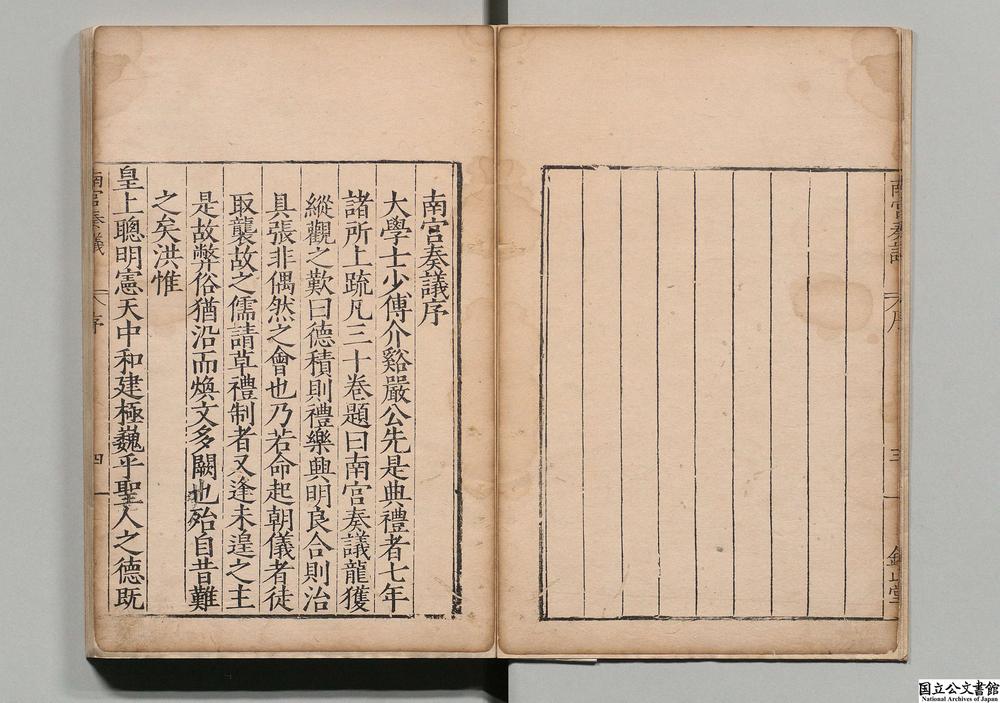 南宫奏議
序
三
鈐山堂
南宫奏議序
大學士少傅介谿嚴公先是典禮者七年
諸所上疏凡三十卷題曰南宫奏議龍獲
縱觀之歎曰德積則禮樂興明良合則治
具張非偶然之會也乃若命起朝儀者徒
取襲故之儒請草禮制者又逢未遑之主
是故弊俗猶沿而煥文多闕也殆自昔難
之矣洪惟
皇上聰明憲天中和建極巍乎聖人之德既
南宫奏議
序
四
国立公文書館
National Archives of Japan